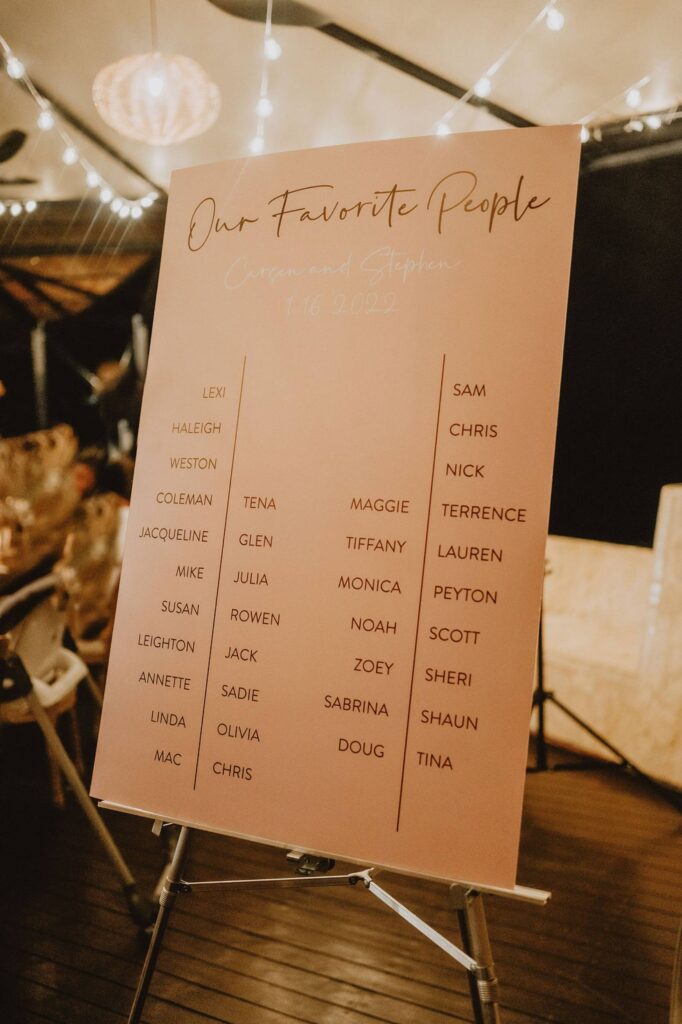 Our Favorite People
Carsen and Stephen
1.16.2022
LEXI
HALEIGH
WESTON
COLEMAN
JACQUELINE
MIKE
SUSAN
LEIGHTON
ANNETTE
LINDA
MAC
TENA
GLEN
JULIA
ROWEN
JACK
SADIE
OLIVIA
CHRIS
MAGGIE
TIFFANY
MONICA
NOAH
ZOEY
SABRINA
DOUG
SAM
CHRIS
NICK
TERRENCE
LAUREN
PEYTON
SCOTT
SHERI
SHAUN
TINA